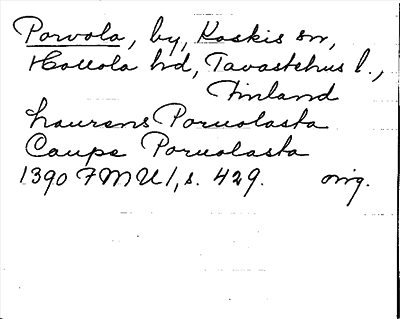 Porvola, by, Koskis sn,
Hollola hd, Tavastehus l.,
Finland
Laurens Poruolasta
Caupe Poruolasta
1390 FMU 1, s. 429. orig.